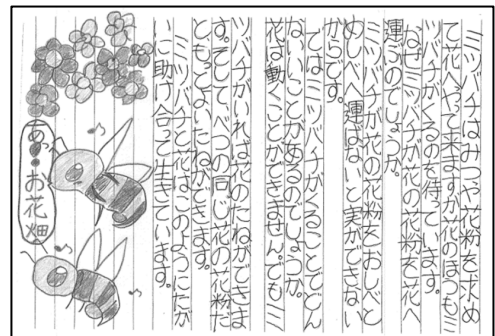 ミツバチはみつや花粉を求め
て花へやって来ますが花のほうもミ
ツバチがくるのを待っています。
なぜミツバチが花の花粉を花へ
運ぶのでしょうか。
ミツバチが花の花粉をおしべと
めしべへ運ばないと実ができない
からです。
ではミツバチがくることでどん
ないいことがあるのでしょうか。
花は動くことができません。でもミ
ツバチがいれば花のたねができま
す。そしてべつの同じ花の花粉だ
ともっとよいたねができます。
ミツバチと花はこのようにたが
いに助け合って生きています。
あっ・・お花畑